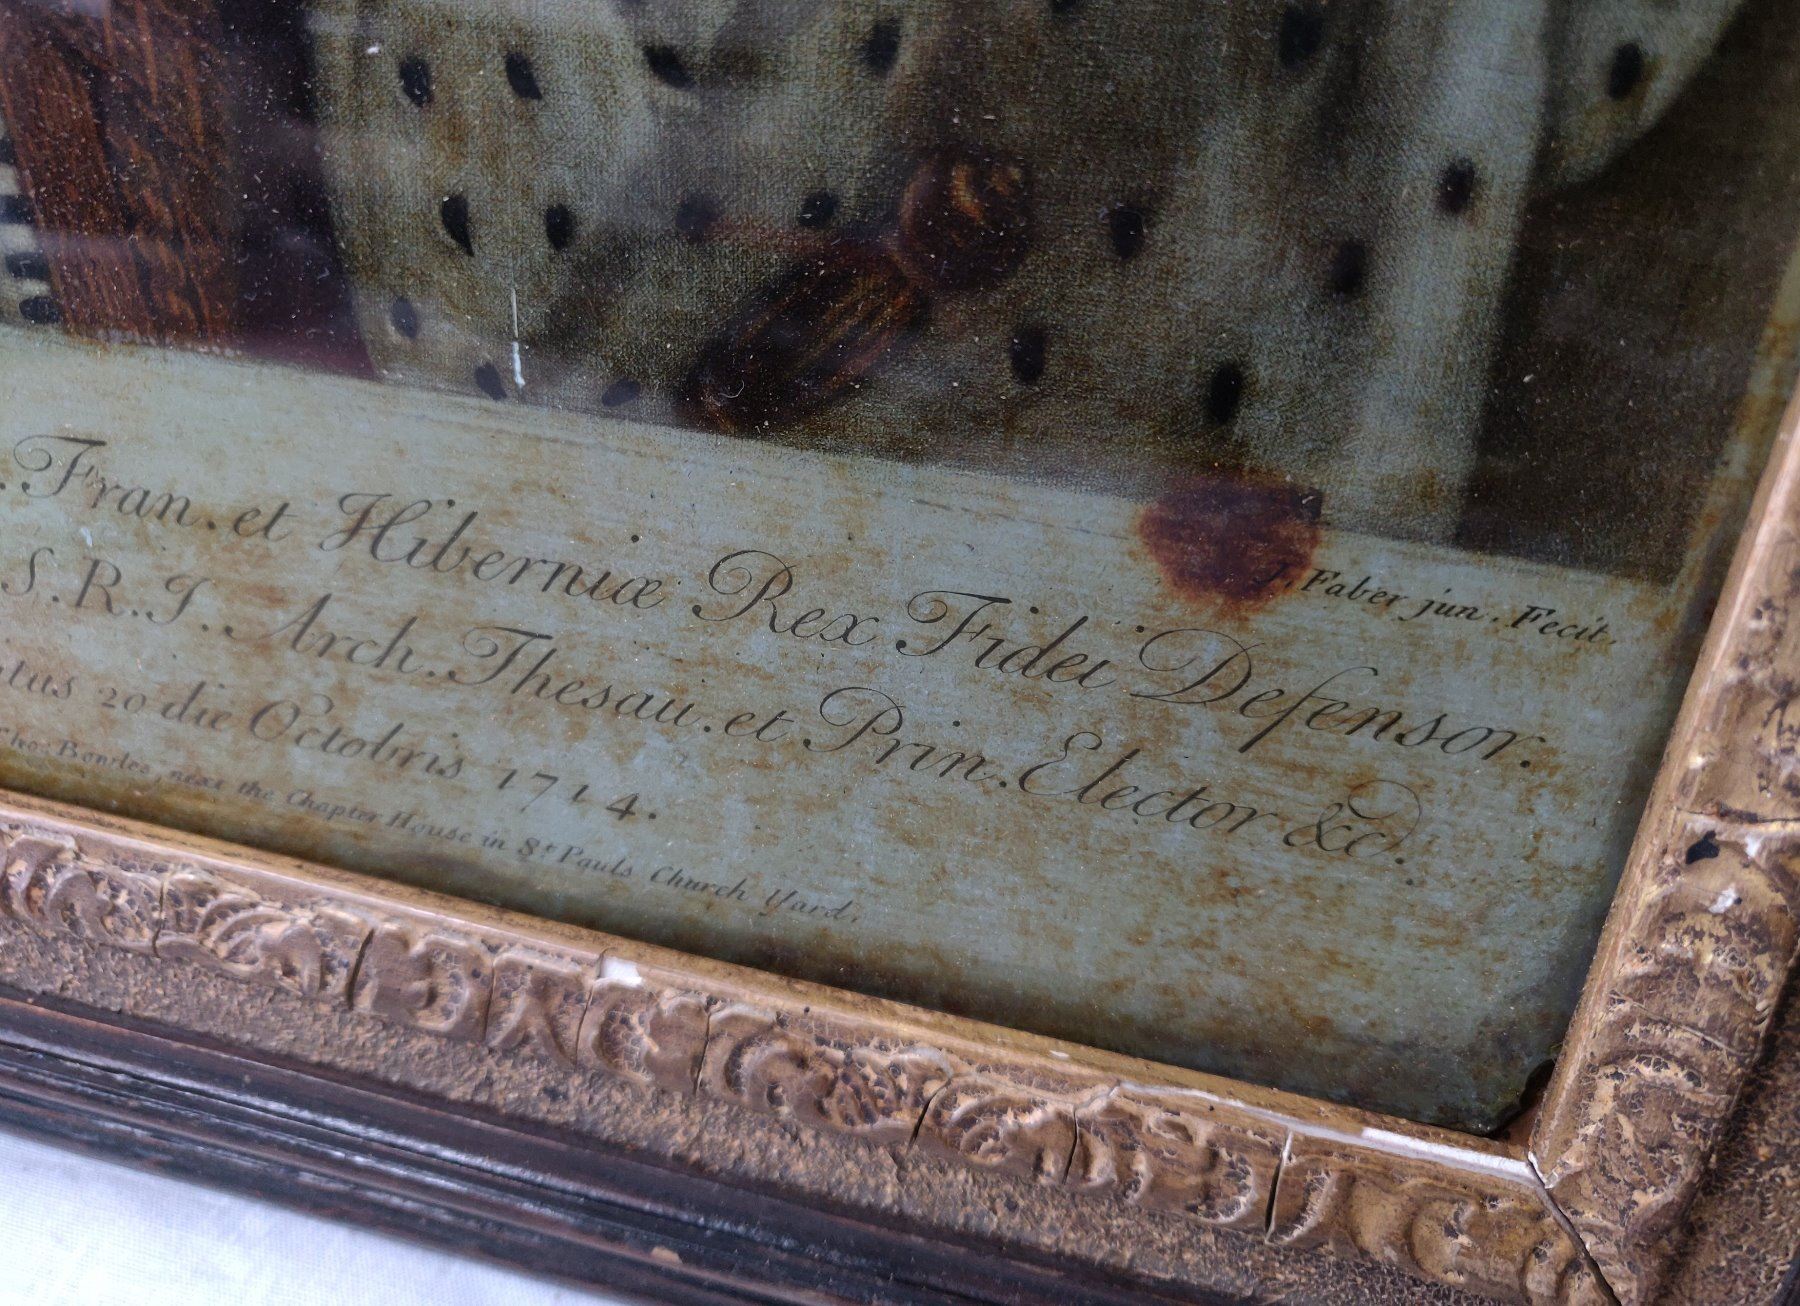 J. Faber jun. Fecit.
. Fran. et Hiberniæ Rex Fidei Defensor.
S.R.I. Arch. Thesau. et Prin. Elector &c.
20 die Octobris 1714.
Tho: Bowles, next the Chapter House in St Pauls Church Yard.